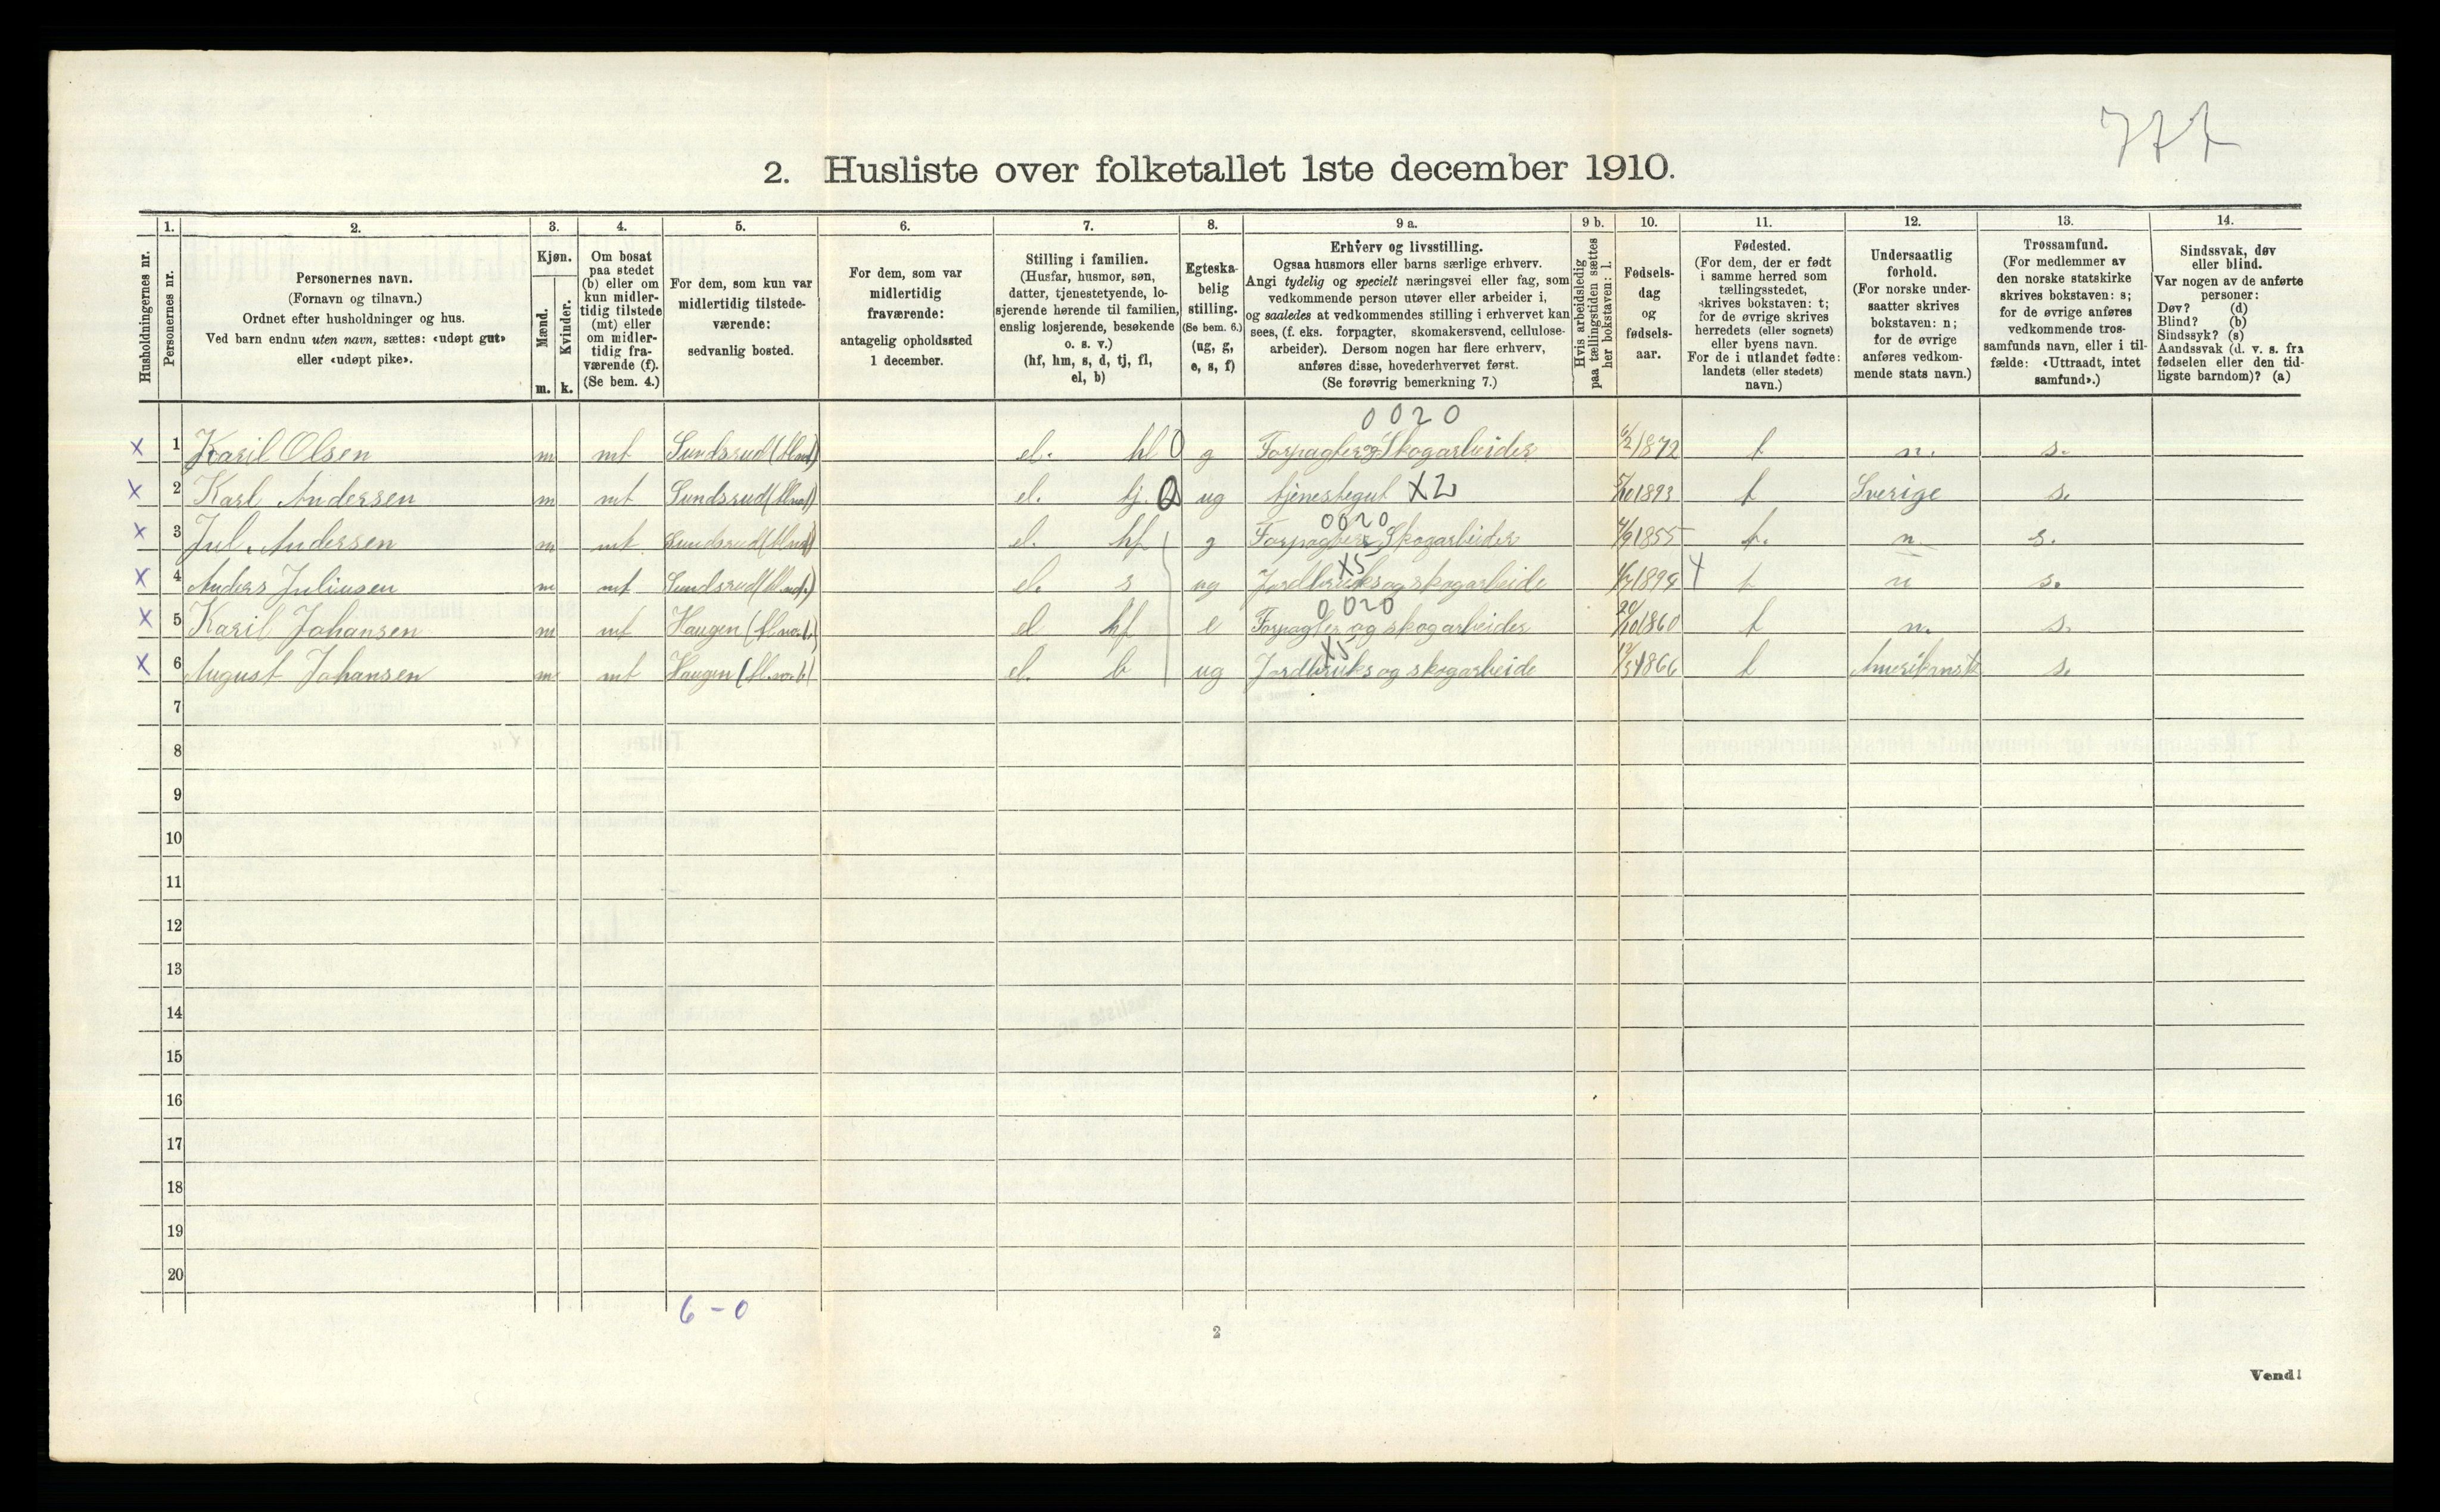 777
2. Husliste over folketallet 1ste december 1910.
Husholdningernes nr.
1.
Personernes nr.
2.
Personernes navn.
(Fornavn og tilnavn.)
Ordnet efter husholdninger og hus.
Ved barn endnu uten navn, sættes: «udøpt gut»
eller «udøpt pike».
3.
Kjøn.
Mænd.
Kvinder.
m. k.
4.
Om bosat
paa stedet
(b) eller om
kun midler-
tidig tilstede
(mt) eller
om midler-
tidig fra-
værende (f).
(Se bem. 4.)
5.
For dem, som kun var
midlertidig tilstede-
værende:
sedvanlig bosted.
6.
For dem, som var
midlertidig
fraværende:
antagelig opholdssted
1 december.
7.
Stilling i familien.
(Husfar, husmor, søn,
datter, tjenestetyende, lo-
sjerende hørende til familien,
enslig losjerende, besøkende
o. s. v.)
(hf, hm, s, d, tj, fl,
el, b)
8.
Egteska-
belig
stilling.
(Se bem. 6.)
(ug, g,
e, s, f)
9 a.
Erhverv og livsstilling.
Ogsaa husmors eller barns særlige erhverv.
Angi tydelig og specielt næringsvei eller fag, som
vedkommende person utøver eller arbeider i,
og saaledes at vedkommendes stilling i erhvervet kan
sees, (f. eks. forpagter, skomakersvend, cellulose-
arbeider). Dersom nogen har flere erhverv,
anføres disse, hovederhvervet først.
(Se forøvrig bemerkning 7.)
9 b.
Hvis arbeidsledig
paa tællingstiden sættes
her bokstaven: l.
10.
Fødsels-
dag
og
fødsels-
aar.
11.
Fødested.
(For dem, der er født
i samme herred som
tællingsstedet,
skrives bokstaven: t;
for de øvrige skrives
herredets (eller sognets)
eller byens navn.
For de i utlandet fødte:
landets (eller stedets)
navn.)
12.
Undersaatlig
forhold.
(For norske under-
saatter skrives
bokstaven: n;
for de øvrige
anføres vedkom-
mende stats navn.)
13.
Trossamfund.
(For medlemmer av
den norske statskirke
skrives bokstaven: s;
for de øvrige anføres
vedkommende tros-
samfunds navn, eller i til-
fælde: «Uttraadt, intet
samfund».)
14.
Sindssvak, døv
eller blind.
Var nogen av de anførte
personer:
Døv? (d)
Blind? (b)
Sindssyk? (s)
Aandssvak (d. v. s. fra
fødselen eller den tid-
ligste barndom)? (a)
0020
x 1 Karil Olsen m mt Sundsrud el. 0 g Forpagter og Skogarbeider 6/2 1872 t n. s.
x 2 Karl Andersen m mt Sundsrud el. tj. ug tjenestegut X2 1893 t Sverige s.
0020
x 3 Jul. Andersen m mt Sundsrud el. hf g Forpagter Skogarbeider 1855 t. n s.
X5
x 4 Anders Juliusen m mt Sundsrud el. s ug Jordbruks og skogarbeide t n s.
0020
x 5 Karil Johansen m mt Haugen el hf e Forpagter og skogarbeider 20/10 1860 t n. s.
X5
x 6 August Johansen m mt Haugen el. b ug Jordbruks og skogarbeide 1866 t Amerikansk s.
7
8
9
10
11
12
13
14
15
16
17
18
19
20
6 - 0
2
Vend!